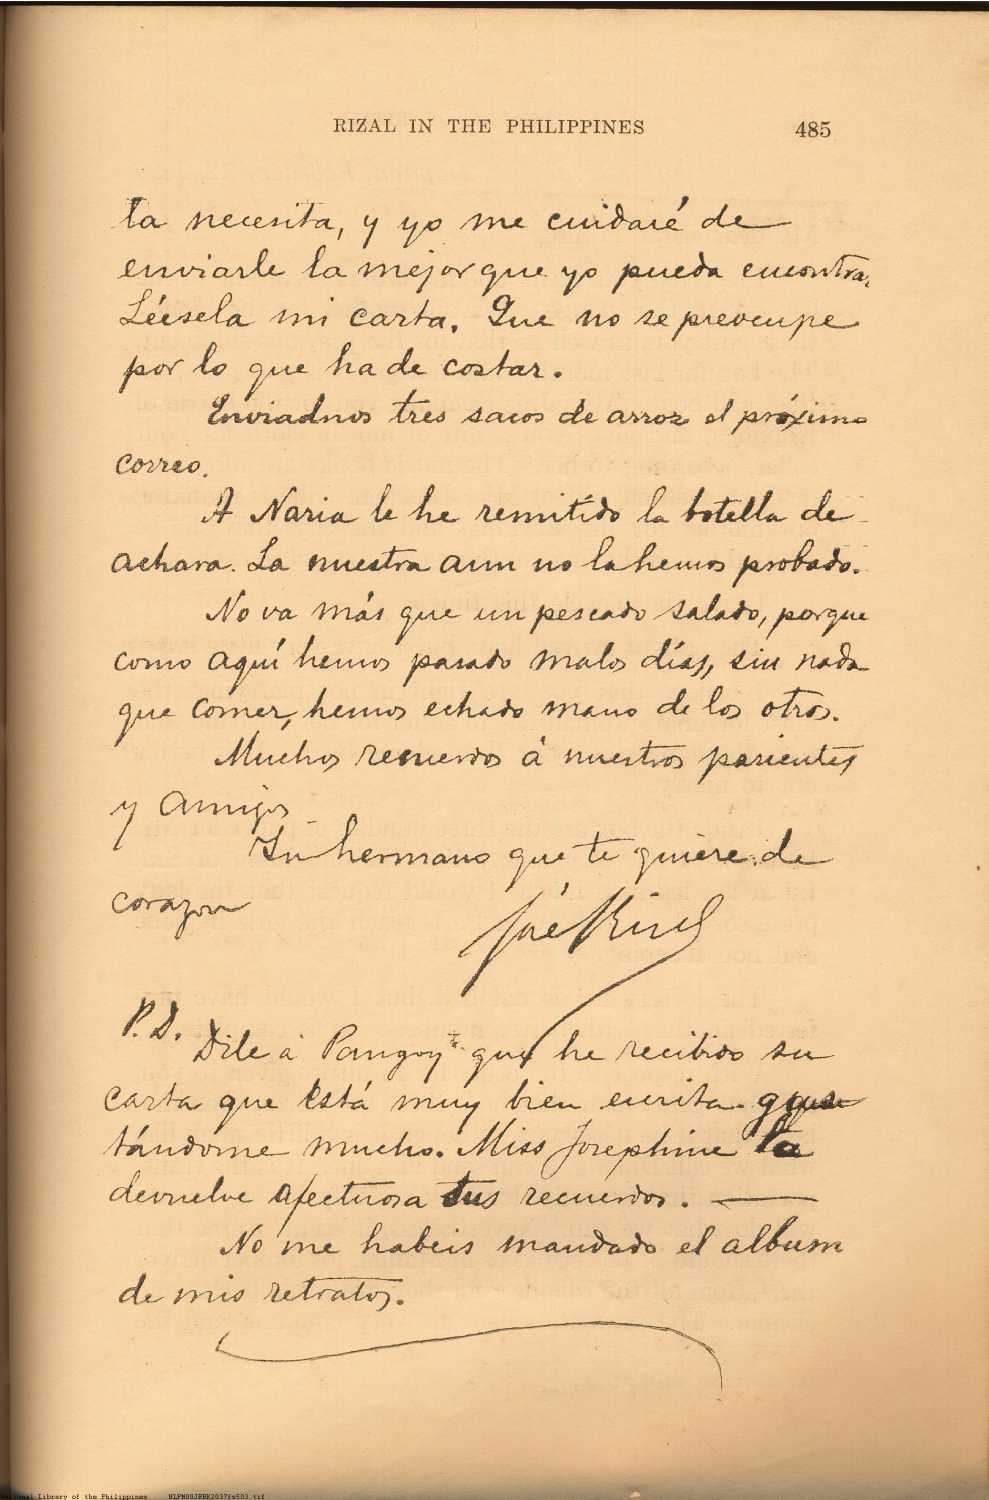 RIZAL IN THE PHILIPPINES 485
la necesita, y yo me cuidaré de
enviarle la mejor que yo pueda encontrar.
Léesela mi carta. Que no se preocupe
por lo que ha de costar.
Enviadnos tres sacos de arroz el próximo
correo.
A Naria le he remitido la botella de
achara. La nuestra aun no la hemos probado.
No va más que un pescado salado, porque
como aquí hemos pasado malos días, sin nada
que comer, hemos echado mano de los otros.
Muchos recuerdos á nuestros parientes
y amigos
Tu hermano que te quiere de
corazon
José Rizal
P.D.
Dile á Pangoy que he recibido su
carta que está muy bien escrita gus
tándome mucho. Miss Josephine la
devuelve afectuosa sus recuerdos.
No me habeis mandado el album
de mis retratos.
National Library of the Philippines